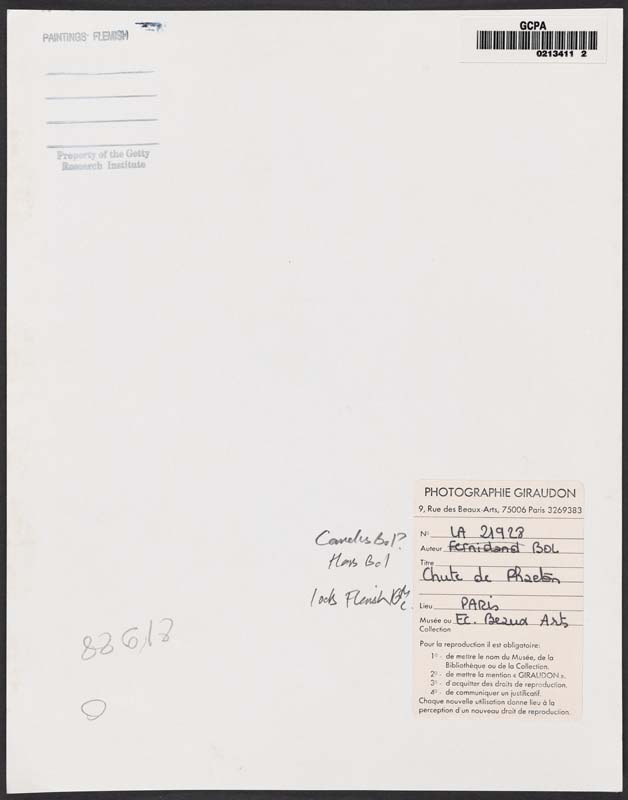 PAINTINGS FLEMISH
GCPA
0213411 2
Property of the Getty
Research Institute
PHOTOGRAPHIE GIRAUDON
9, Rue des Beaux-Arts, 75006 Paris 3269383
N° LA 21928
Auteur Fernidand BOL
Titre
Chute de Phaeton
Lieu PARIS
Musée ou Ec. Beaux Arts
Collection
Pour la reproduction il est obligatoire:
1° - de mettre le nom du Musée, de la
Bibliothèque ou de la Collection.
2° - de mettre la mention « GIRAUDON ».
3° - d'acquitter des droits de reproduction.
4° - de communiquer un justificatif.
Chaque nouvelle utilisation donne lieu à la
perception d'un nouveau droit de reproduction.
Cornelis Bol?
Hans Bol
looks Flemish